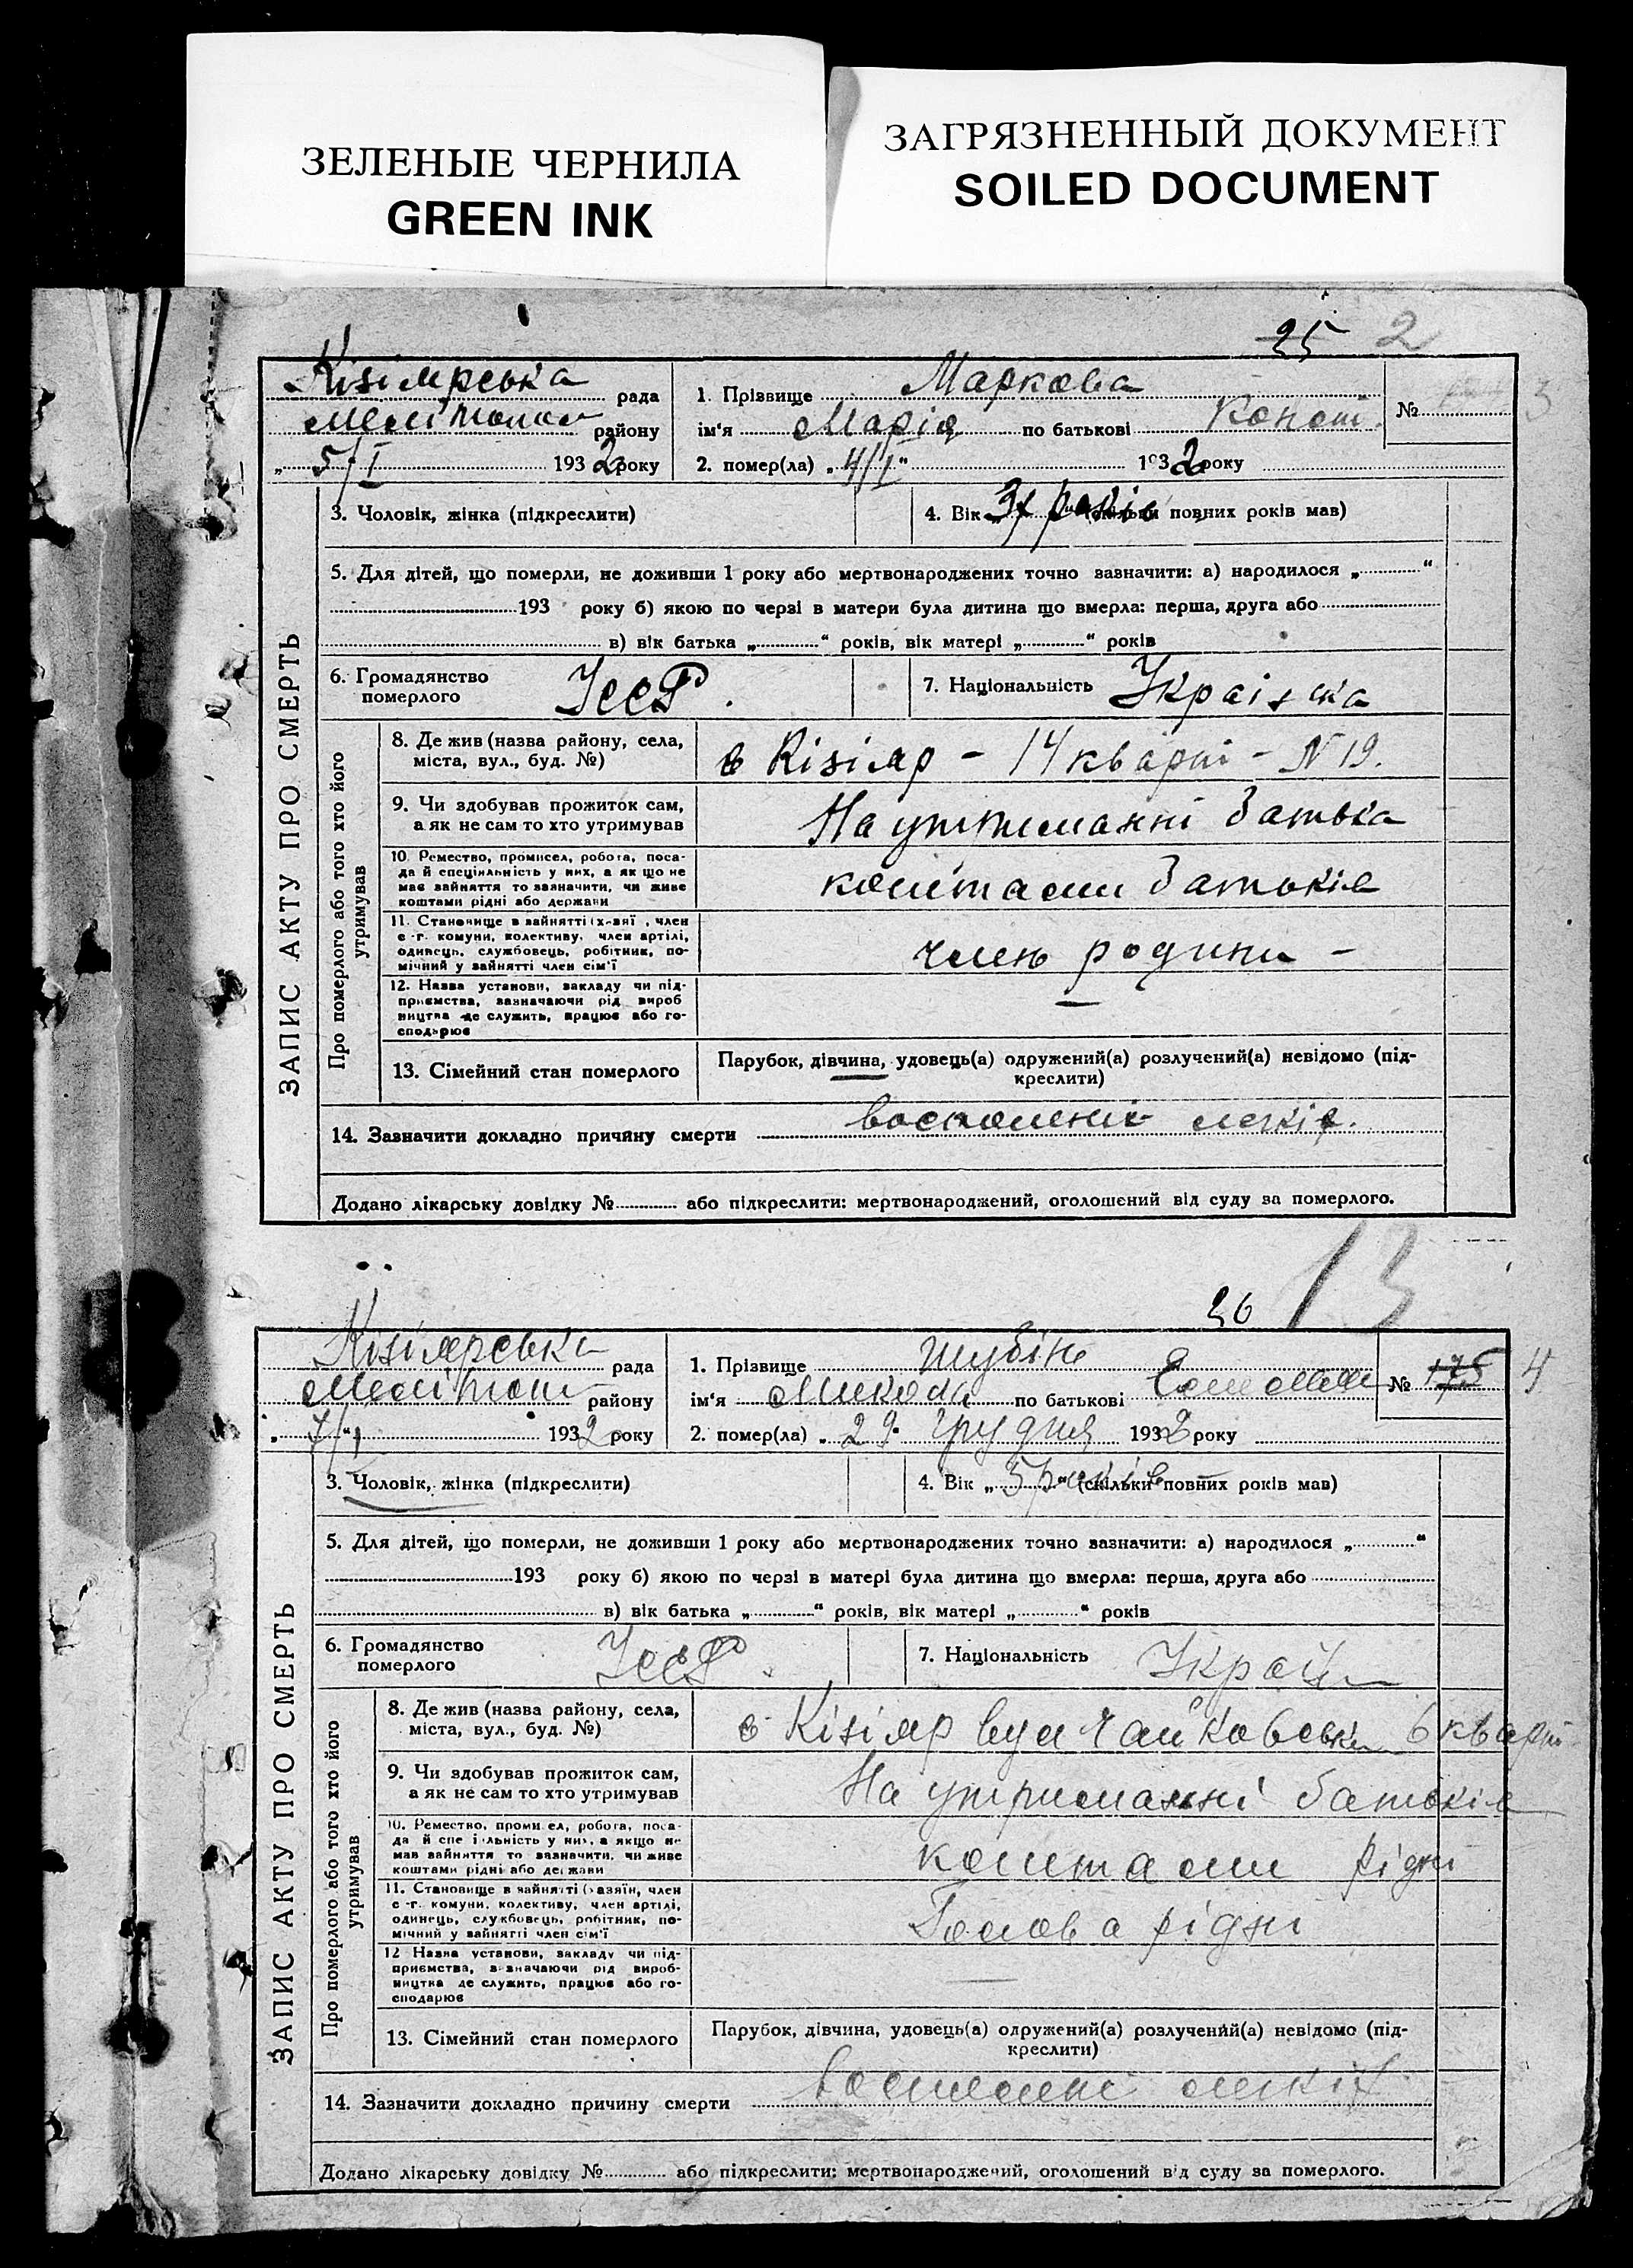 ЗЕЛЕНЫЕ ЧЕРНИЛА
GREEN INK
ЗАГРЯЗНЕННЫЙ ДОКУМЕНТ
SOILED DOCUMENT
25 2
Кізіярська рада
1. Прізвище Маркова
№ 3
району
ім‘я Марія по батькові
„ 5/I 1932 року
2. помер(ла) „ 4/I “ 1932 року
3. Чоловік, жінка (підкреслити)
4. Вік років (скільки повних років мав)
5. Для дітей, що померли, не доживши 1 року або мертвонароджених точно зазначити: а) народилося „ “
193 року б) якою по черзі в матери була дитина що вмерла: перша, друга або
в) вік батька „ “ років, вік матері „ “ років
ЗАПИС АКТУ ПРО СМЕРТЬ
6. Громадянство померлого УССР.
7. Національність Українка
Про померлого або того хто його утримував
8. Де жив (назва району, села,
міста, вул., буд. №)
с Кізіяр – 14 кварт – N 19.
9. Чи здобував прожиток сам,
а як не сам то хто утримував
На утриманні батька
10. Ремество, промисел, робота, поса-
да й спеціяльність у них, а як що не
має зайняття то зазначити, чи живе
коштами рідні або держави
коштами батьків
11. Становище в зайнятті (х-зяї , член
с -г. комуни, колективу, член артілі,
одинець, службовець, робітник, по-
мічний у зайнятті член сім‘ї
член родини –
12. Назва установи, закладу чи під-
приємства, зазначаючи рід вироб
ництва де служить, працює або го-
сподарює
13. Сімейний стан померлого
Парубок, дівчина, удовець(а) одружений(а) розлучений(а) невідомо (під-
креслити)
14. Зазначити докладно причину смерти воспаленіе легків.
Додано лікарську довідку № або підкреслити: мертвонароджений, оголошений від суду за померлого.
26 13
Кізіярська рада
1. Прізвище Шубін
№ 175 4
району
ім‘я Микола по батькові
„ 7/1 1932 року
2. помер(ла) „ 29 грудня 1932 року
3. Чоловік, жінка (підкреслити)
4. Вік „ 5 років “ (скільки повних років мав)
5. Для дітей, що померли, не доживши 1 року або мертвонароджених точно зазначити: а) народилося „ “
193 року б) якою по черзі в матері була дитина що вмерла: перша, друга або
в) вік батька „ “ років, вік матері „ “ років
ЗАПИС АКТУ ПРО СМЕРТЬ
6. Громадянство померлого УССР.
7. Національність Україн
Про померлого або того хто його утримував
8. Де жив (назва району, села,
міста, вул., буд. №)
с Кізіяр вул Чайковськ 6 кварт
9. Чи здобував прожиток сам,
а як не сам то хто утримував
На утриманні батьків
10. Ремество, проми ел, робота, поса-
да й спе і льність у них, а якщо не
мав зайняття то зазначити, чи живе
коштами рідні або держави
коштами рідні
11. Становище в зайнятті (хазяїн, член
с -г. комуни, колективу, член артілі,
одинець, службовець, робітник, по-
мічний у зайнятті член сім‘ї
Голова рідні
12 Назва установи, закладу чи під-
приємства, зазначаючи рід вироб-
ництва де служить, працює або го-
сподарює
13. Сімейний стан померлого
Парубок, дівчина, удовець(а) одружений(а) розлучений(а) невідомо (під-
креслити)
14. Зазначити докладно причину смерти легків
Додано лікарську довідку № або підкреслити: мертвонароджений, оголошений від суду за померлого.